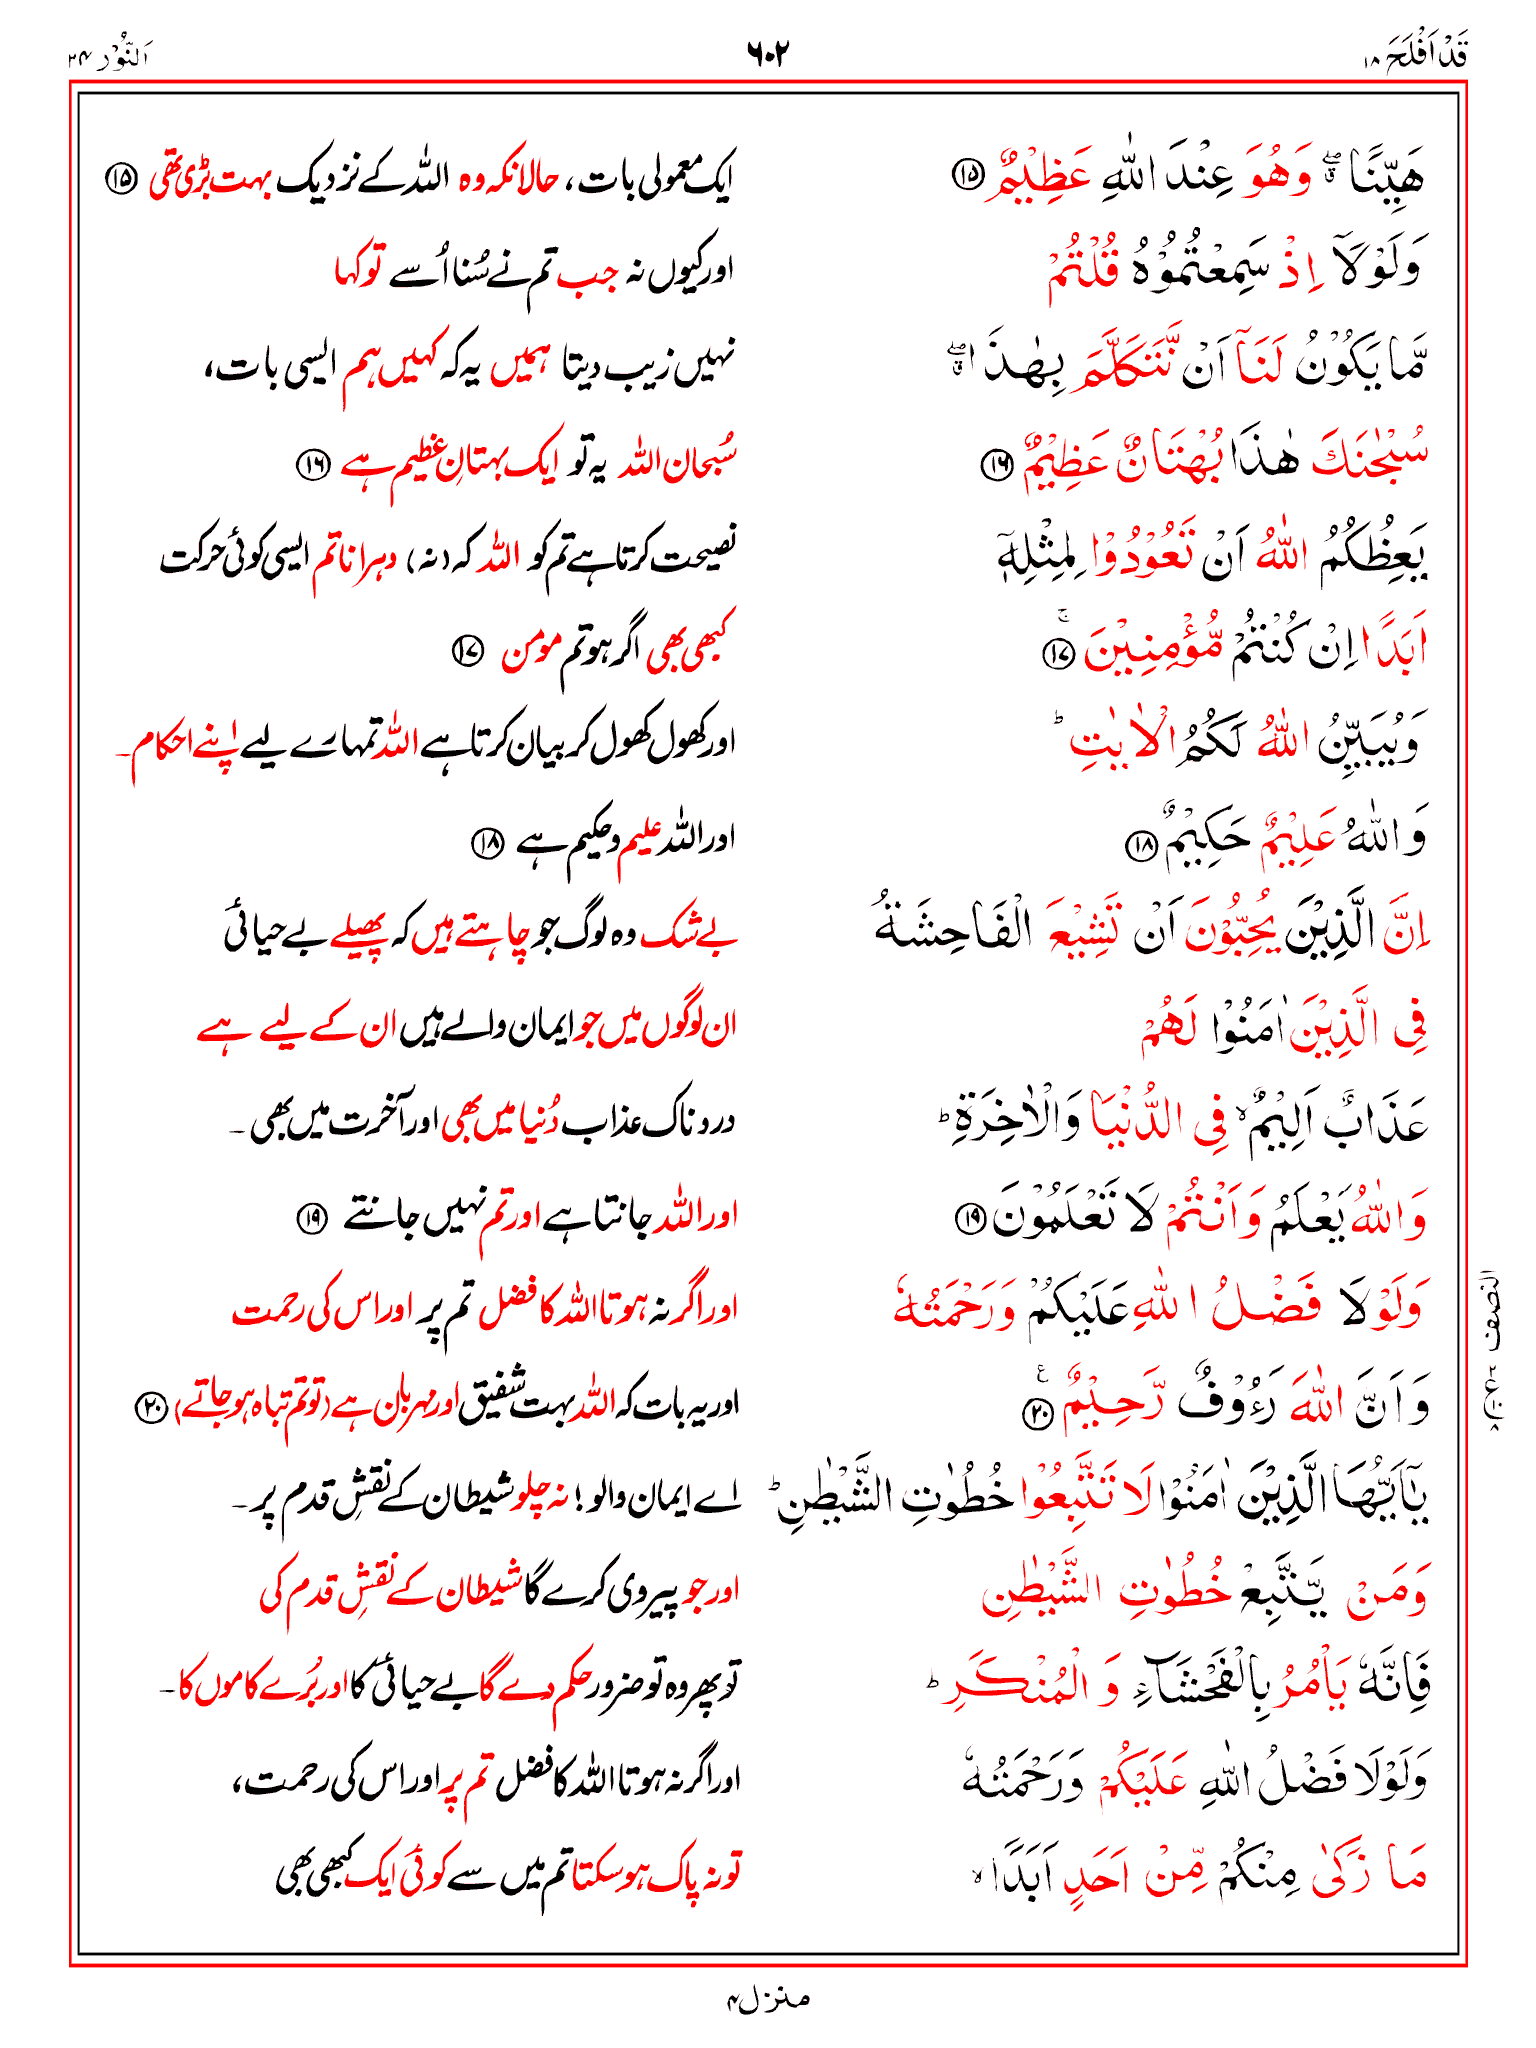 قَدْ اَفْلَحَ ۱۸
۶۰۲
اَلنُّوْر ۲۴
هَيِّنًا ۖۗ وَهُوَ عِنْدَ اللّٰهِ عَظِيْمٌ ⑮ ایک معمولی بات، حالانکہ وہ اللہ کے نزدیک بہت بڑی تھی ⑮
وَلَوْلَآ اِذْ سَمِعْتُمُوْهُ قُلْتُمْ اور کیوں نہ جب تم نے سُنا اُسے تو کہا
مَّا يَكُوْنُ لَنَآ اَنْ نَّتَكَلَّمَ بِهٰذَا ۖۗ نہیں زیب دیتا ہمیں یہ کہ کہیں ہم ایسی بات،
سُبْحٰنَكَ هٰذَا بُهْتَانٌ عَظِيْمٌ ⑯ سُبحان اللہ یہ تو ایک بہتانِ عظیم ہے ⑯
يَعِظُكُمُ اللّٰهُ اَنْ تَعُوْدُوْا لِمِثْلِهٖٓ نصیحت کرتا ہے تم کو اللہ کہ (نہ) دہرانا تم ایسی کوئی حرکت
اَبَدًا اِنْ كُنْتُمْ مُّؤْمِنِيْنَ ۚ ⑰ کبھی بھی اگر ہو تم مومن ⑰
وَيُبَيِّنُ اللّٰهُ لَكُمُ الْاٰيٰتِ ؕ اور کھول کھول کر بیان کرتا ہے اللہ تمہارے لیے اپنے احکام۔
وَاللّٰهُ عَلِيْمٌ حَكِيْمٌ ⑱ اور اللہ علیم و حکیم ہے ⑱
اِنَّ الَّذِيْنَ يُحِبُّوْنَ اَنْ تَشِيْعَ الْفَاحِشَةُ بے شک وہ لوگ جو چاہتے ہیں کہ پھیلے بے حیائی
فِى الَّذِيْنَ اٰمَنُوْا لَهُمْ ان لوگوں میں جو ایمان والے ہیں ان کے لیے ہے
عَذَابٌ اَلِيْمٌ ۙ فِى الدُّنْيَا وَالْاٰخِرَةِ ؕ دردناک عذاب دُنیا میں بھی اور آخرت میں بھی۔
وَاللّٰهُ يَعْلَمُ وَاَنْتُمْ لَا تَعْلَمُوْنَ ⑲ اور اللہ جانتا ہے اور تم نہیں جانتے ⑲
وَلَوْلَا فَضْلُ اللّٰهِ عَلَيْكُمْ وَرَحْمَتُهٗ اور اگر نہ ہوتا اللہ کا فضل تم پر اور اس کی رحمت
وَاَنَّ اللّٰهَ رَءُوْفٌ رَّحِيْمٌ ⑳ اور یہ بات کہ اللہ بہت شفیق اور مہربان ہے (تو تم تباہ ہو جاتے) ⑳
يٰٓاَيُّهَا الَّذِيْنَ اٰمَنُوْا لَا تَتَّبِعُوْا خُطُوٰتِ الشَّيْطٰنِ ؕ اے ایمان والو! نہ چلو شیطان کے نقشِ قدم پر۔
وَمَنْ يَّتَّبِعْ خُطُوٰتِ الشَّيْطٰنِ اور جو پیروی کرے گا شیطان کے نقشِ قدم کی
فَاِنَّهٗ يَاْمُرُ بِالْفَحْشَآءِ وَالْمُنْكَرِ ؕ تو پھر وہ تو ضرور حکم دے گا بے حیائی کا اور بُرے کاموں کا۔
وَلَوْلَا فَضْلُ اللّٰهِ عَلَيْكُمْ وَرَحْمَتُهٗ اور اگر نہ ہوتا اللہ کا فضل تم پر اور اس کی رحمت،
مَا زَكٰى مِنْكُمْ مِّنْ اَحَدٍ اَبَدًا ۙ تو نہ پاک ہو سکتا تم میں سے کوئی ایک کبھی بھی
النصف
منزل ۴